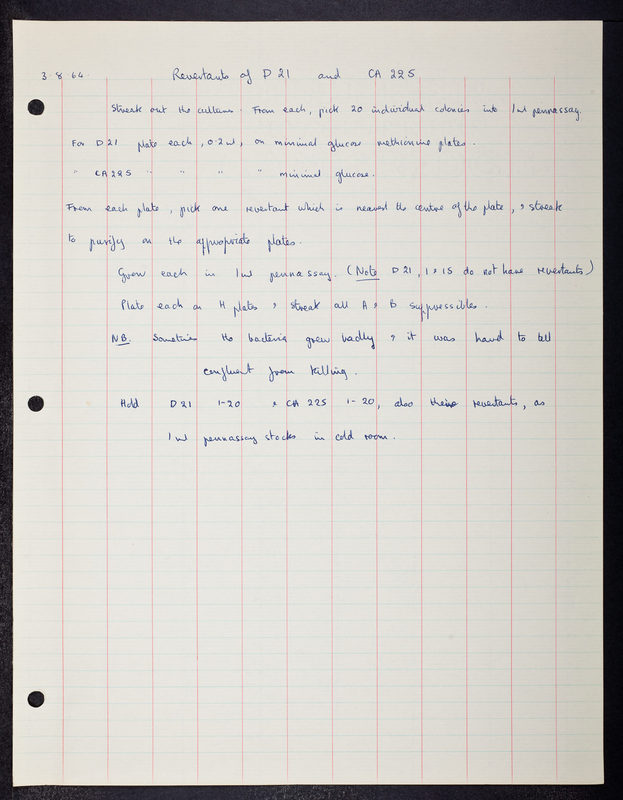 3.8.64. Revertants of D21 and CA 225
Streak out the cultures. From each, pick 20 individual colonies into 1ml pennassay.
For D21 plate each, 0.2ml, on minimal glucose methionine plates.
" CA225 " " " " minimal glucose.
From each plate, pick one revertant which is nearest the centre of the plate, & streak
to purify on the appropriate plates.
Grow each in 1ml pennassay. (Note D21, 1 & 15 do not have revertants)
Plate each on H plates & streak all A & B suppressibles.
NB. Sometimes the bacteria grew badly & it was hard to tell
confluent from killing.
Hold D21 1-20 & CA 225 1-20, also their revertants, as
1ml pennassay stocks in cold room.